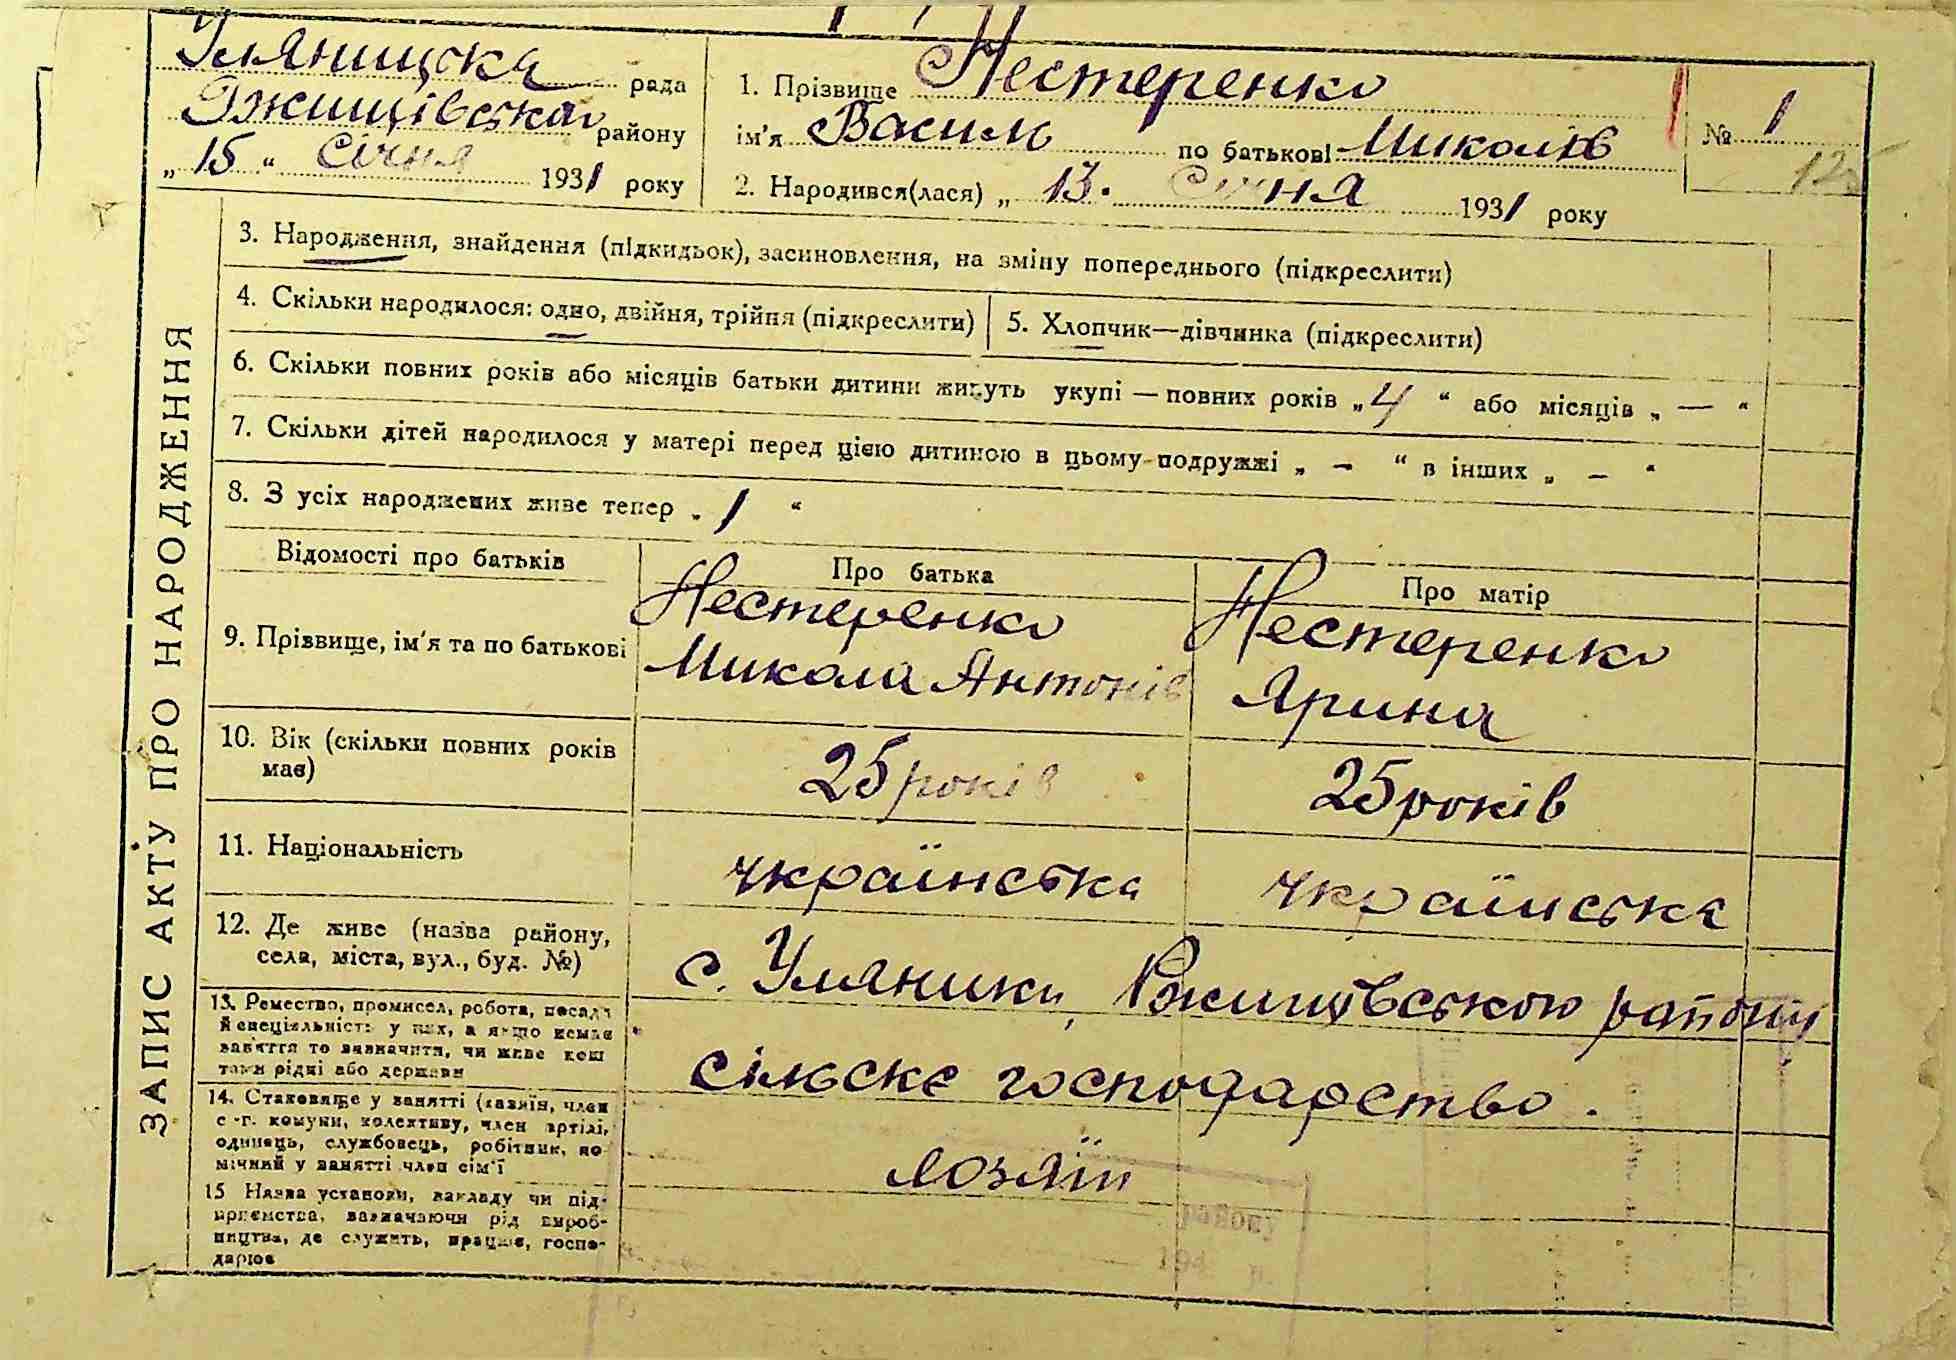 Уляницька рада
Ржищівська району
„ 15 “ Січня 1931 року
1. Прізвище Нестеренко
ім'я Василь по батькові Миколів
2. Народився(лася) „ 13. Січня 1931 року
№ 1
125
ЗАПИС АКТУ ПРО НАРОДЖЕННЯ
3. Народження, знайдення (підкидьок), засиновлення, на зміну попереднього (підкреслити)
4. Скільки народилося: одно, двійня, трійня (підкреслити)
5. Хлопчик—дівчинка (підкреслити)
6. Скільки повних років або місяців батьки дитини живуть укупі — повних років „ 4 “ або місяців „ — “
7. Скільки дітей народилося у матері перед цією дитиною в цьому подружжі „ – “ в інших „ – “
8. З усіх народжених живе тепер „ 1 “
Відомості про батьків
Про батька
Про матір
9. Прізвище, ім'я та по батькові
Нестеренко
Микола Антонів
Нестеренко
Ярина
10. Вік (скільки повних років
має)
25 років
25 років
11. Національність
українська
українська
12. Де живе (назва району,
села, міста, вул., буд. №)
с. Уляники, Ржищівського району
13. Ремество, промисел, робота, посада
й спеціяльність у них, а якщо немає
заняття то зазначити, чи живе кош
тами рідні або держави
сільске господарство.
14. Становище у занятті (хазяїн, член
с.-г. комуни, колективу, член артілі,
одинець, службовець, робітник, по
мічний у занятті член сім'ї
хозяїн
15 Назва установи, закладу чи під-
приємства, зазначаючи рід вироб-
ництва, де служить, працює, госпо-
дарює
району
194 р.